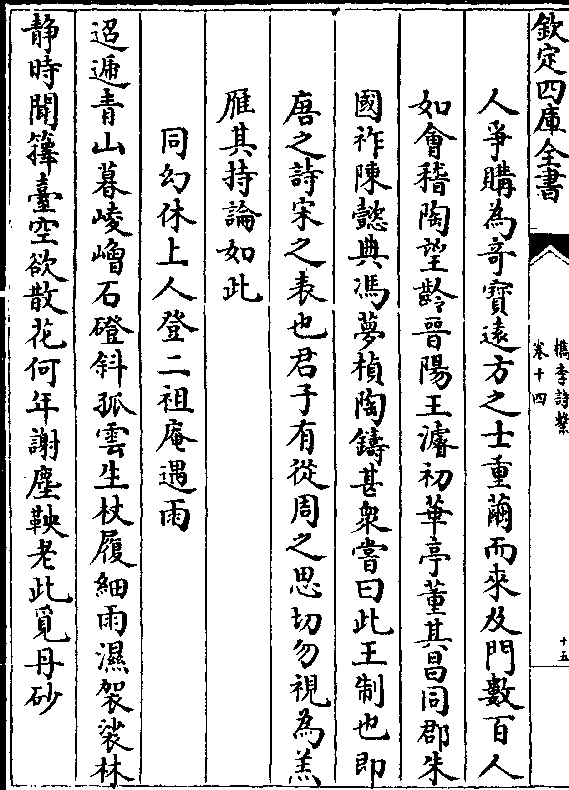 欽定四庫全書
檇李詩繫
卷十四
十五
人爭購為奇寶遠方之士重繭而來及門數百人
如會稽陶望齡晉陽王濬初華亭董其昌同郡朱
國祚陳懿典馮夢楨陶鑄甚衆嘗曰此王制也即
唐之詩宋之表也君子有從周之思切勿視為羔
雁其持論如此
同幻休上人登二祖庵遇雨
迢遞青山暮崚嶒石磴斜孤雲生杖履細雨濕袈裟林
静時聞籜臺空欲散花何年謝塵鞅老此覓丹砂